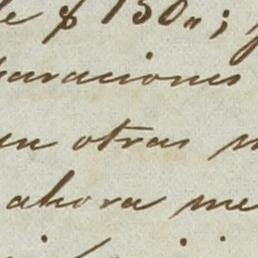 $ 150,,;
paraciones
en otras
ahora me